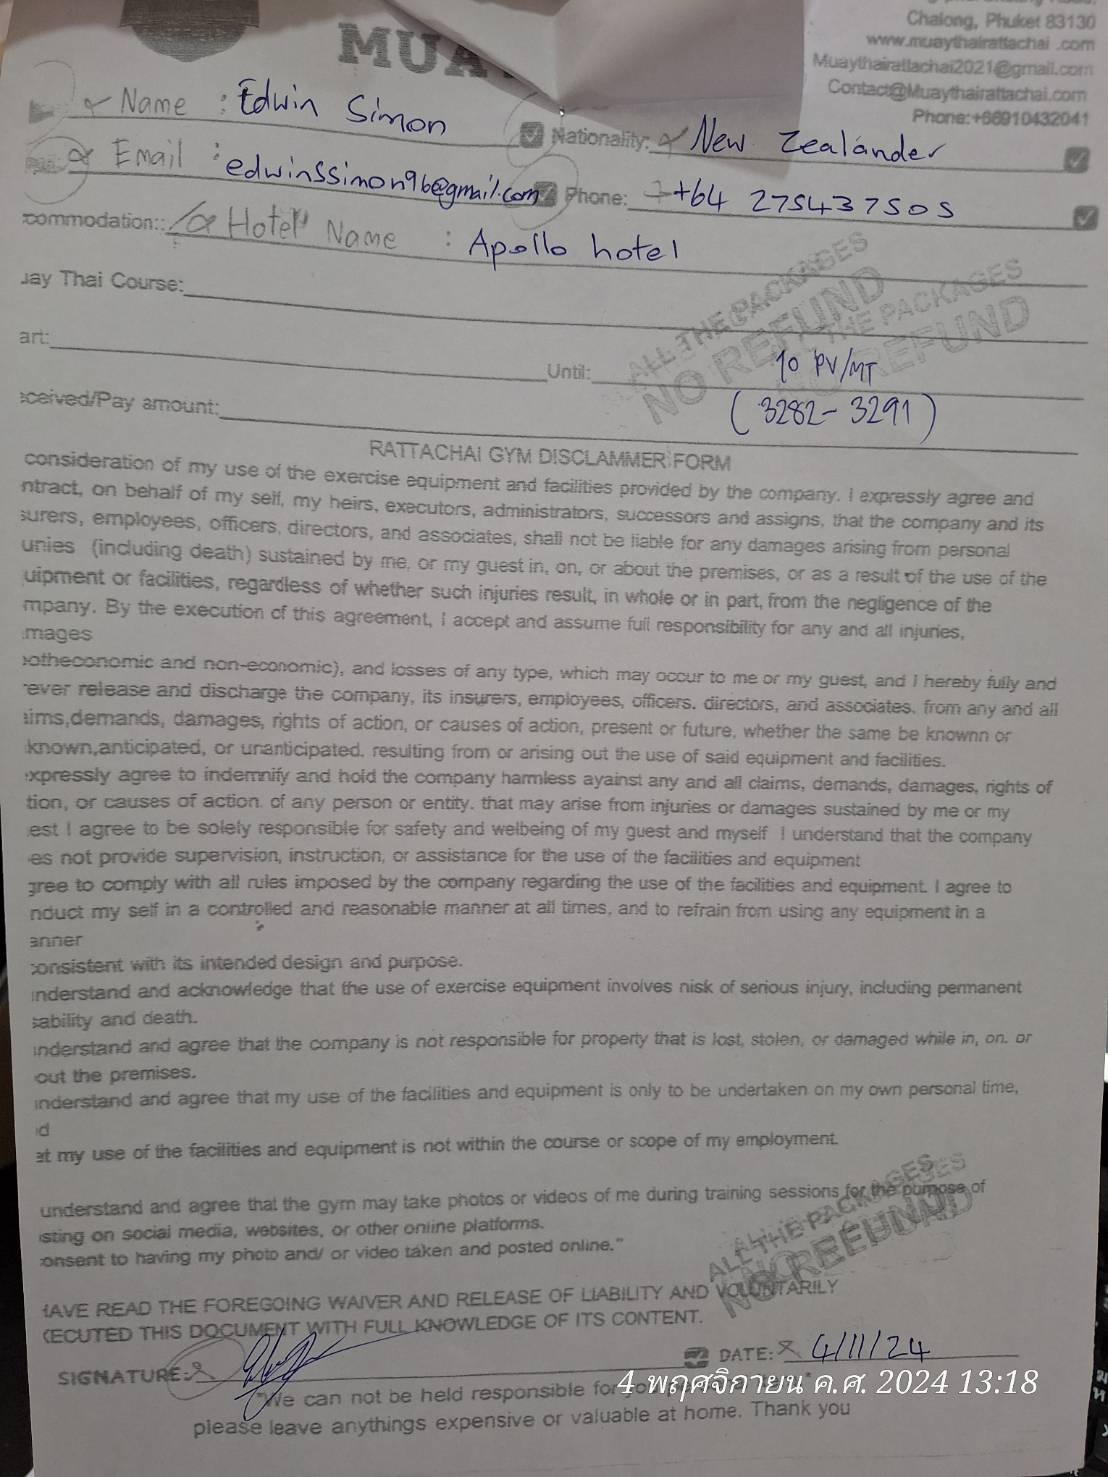 MUA
Chalong, Phuket 83130
www.muaythairattachai .com
Muaythairattachai2021@gmail.com
Contact@Muaythairattachai.com
Phone:+66910432041
Name : Edwin Simon
Nationality: New Zealander
Email : edwinssimon96@gmail.com
Phone: +64 275437505
commodation:: Hotel Name : Apollo hotel
uay Thai Course:
ALL THE PACKAGES
NO REFUND
THE PACKAGES
REFUND
art:
Until:
10 PV/MT
ceived/Pay amount:
(3282-3291)
RATTACHAI GYM DISCLAMMER FORM
consideration of my use of the exercise equipment and facilities provided by the company. I expressly agree and
ntract, on behalf of my self, my heirs, executors, administrators, successors and assigns, that the company and its
surers, employees, officers, directors, and associates, shall not be liable for any damages arising from personal
uries (including death) sustained by me, or my guest in, on, or about the premises, or as a result of the use of the
uipment or facilities, regardless of whether such injuries result, in whole or in part, from the negligence of the
mpany. By the execution of this agreement, I accept and assume full responsibility for any and all injuries,
mages
otheconomic and non-economic), and losses of any type, which may occur to me or my guest, and I hereby fully and
ever release and discharge the company, its insurers, employees, officers. directors, and associates. from any and all
aims,demands, damages, rights of action, or causes of action, present or future, whether the same be knownn or
known,anticipated, or unanticipated. resulting from or arising out the use of said equipment and facilities.
expressly agree to indemnify and hold the company harmless ayainst any and all claims, demands, damages, rights of
tion, or causes of action. of any person or entity. that may arise from injuries or damages sustained by me or my
est I agree to be solely responsible for safety and welbeing of my guest and myself I understand that the company
es not provide supervision, instruction, or assistance for the use of the facilities and equipment
gree to comply with all rules imposed by the company regarding the use of the facilities and equipment. I agree to
nduct my self in a controlled and reasonable manner at all times, and to refrain from using any equipment in a
anner
consistent with its intended design and purpose.
understand and acknowledge that the use of exercise equipment involves nisk of serious injury, including permanent
sability and death.
understand and agree that the company is not responsible for property that is lost, stolen, or damaged while in, on. or
out the premises.
understand and agree that my use of the facilities and equipment is only to be undertaken on my own personal time,
d
at my use of the facilities and equipment is not within the course or scope of my employment.
understand and agree that the gym may take photos or videos of me during training sessions for the purpose of
sting on social media, websites, or other online platforms.
onsent to having my photo and/ or video taken and posted online."
ALL THE PACKAGES
NO REFUND
HAVE READ THE FOREGOING WAIVER AND RELEASE OF LIABILITY AND VOLUNTARILY
KECUTED THIS DOCUMENT WITH FULL KNOWLEDGE OF ITS CONTENT.
SIGNATURE:
DATE: 4/11/24
"We can not be held responsible for
4 พฤศจิกายน ค.ศ. 2024 13:18
please leave anythings expensive or valuable at home. Thank you